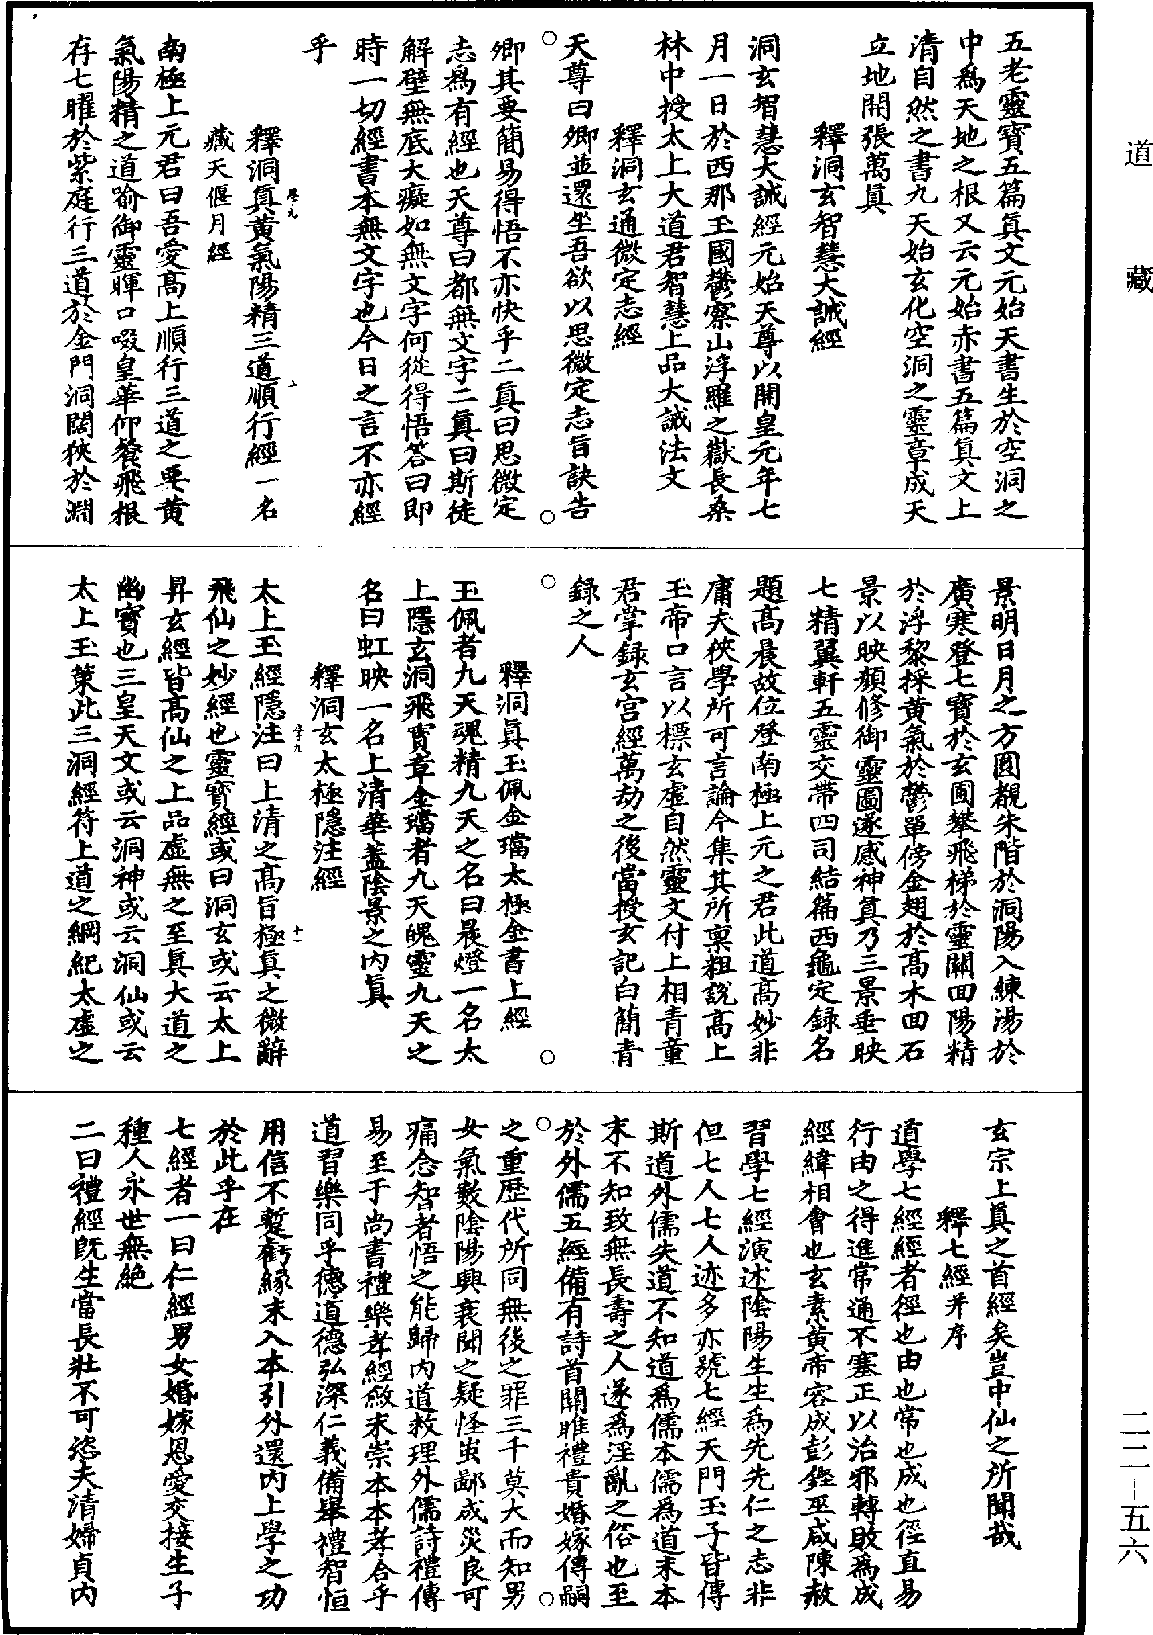 道藏
二二－五六
五老靈寶五篇真文元始天書生於空洞之
中為天地之根又云元始赤書五篇真文上
清自然之書九天始玄化空洞之靈章成天
立地開張萬真
釋洞玄智慧大誡經
洞玄智慧大誡經元始天尊以開皇元年七
月一日於西那玉國鬱察山浮羅之嶽長桑
林中授太上大道君智慧上品大誡法文
釋洞玄通微定志經
天尊曰卿並還坐吾欲以思微定志旨訣告
卿其要簡易得悟不亦快乎二真曰思微定
志為有經也天尊曰都無文字二真曰斯徒
解壁無底大癡如無文字何從得悟答曰即
時一切經書本無文字也今日之言不亦經
乎
釋洞真黃氣陽精三道順行經一名
藏天偃月經
南極上元君曰吾愛高上順行三道之要黃
氣陽精之道喻御靈暉口啜皇華仰餐飛根
存七曜於紫庭行三道於金門洞闊狹於淵
景明日月之方圓觀朱階於洞陽入練湯於
廣寒登七寶於玄圃攀飛梯於靈關回陽精
於浮黎採黃氣於鬱單傍金翅於高木回石
景以映顏修御靈圖遂感神真乃三景垂映
七精翼軒五靈交帶四司結篇西龜定錄名
題高晨故位登南極上元之君此道高妙非
庸夫狹學所可言論今集其所稟粗說高上
玉帝口言以標玄虛自然靈文付上相青童
君掌錄玄宮經萬劫之後當授玄記白簡青
錄之人
釋洞真玉佩金璫太極金書上經
玉佩者九天魂精九天之名曰晨燈一名太
上隱玄洞飛寶章金璫者九天魄靈九天之
名曰虹映一名上清華蓋陰景之內真
釋洞玄太極隱注經
太上玉經隱注曰上清之高旨極真之微辭
飛仙之妙經也靈寶經或曰洞玄或云太上
昇玄經皆高仙之上品虛無之至真大道之
幽寶也三皇天文或云洞神或云洞仙或云
太上玉策此三洞經符上道之綱紀太虛之
玄宗上真之首經矣豈中仙之所聞哉
釋七經并序
道學七經經者徑也由也常也成也徑直易
行由之得進常通不塞正以治邪轉敗為成
經緯相會也玄素黃帝容成彭鏗巫咸陳赦
習學七經演述陰陽生生為先先仁之志非
但七人七人迹多亦號七經天門玉子皆傳
斯道外儒失道不知道為儒本儒為道末本
末不知致無長壽之人遂為淫亂之俗也至
於外儒五經備有詩首關雎禮貴婚嫁傳嗣
之重歷代所同無後之罪三千莫大而知男
女氣數陰陽興衰聞之疑怪蚩鄙成災良可
痛念智者悟之能歸內道救理外儒詩禮傳
易至于尚書禮樂孝經斂末崇本本孝合乎
道習樂同乎德道德弘深仁義備舉禮智恒
用信不暫虧緣末入本引外還內上學之功
於此乎在
七經者一曰仁經男女婚嫁恩愛交接生子
種人永世無絕
二曰禮經既生當長壯不可恣夫清婦貞內